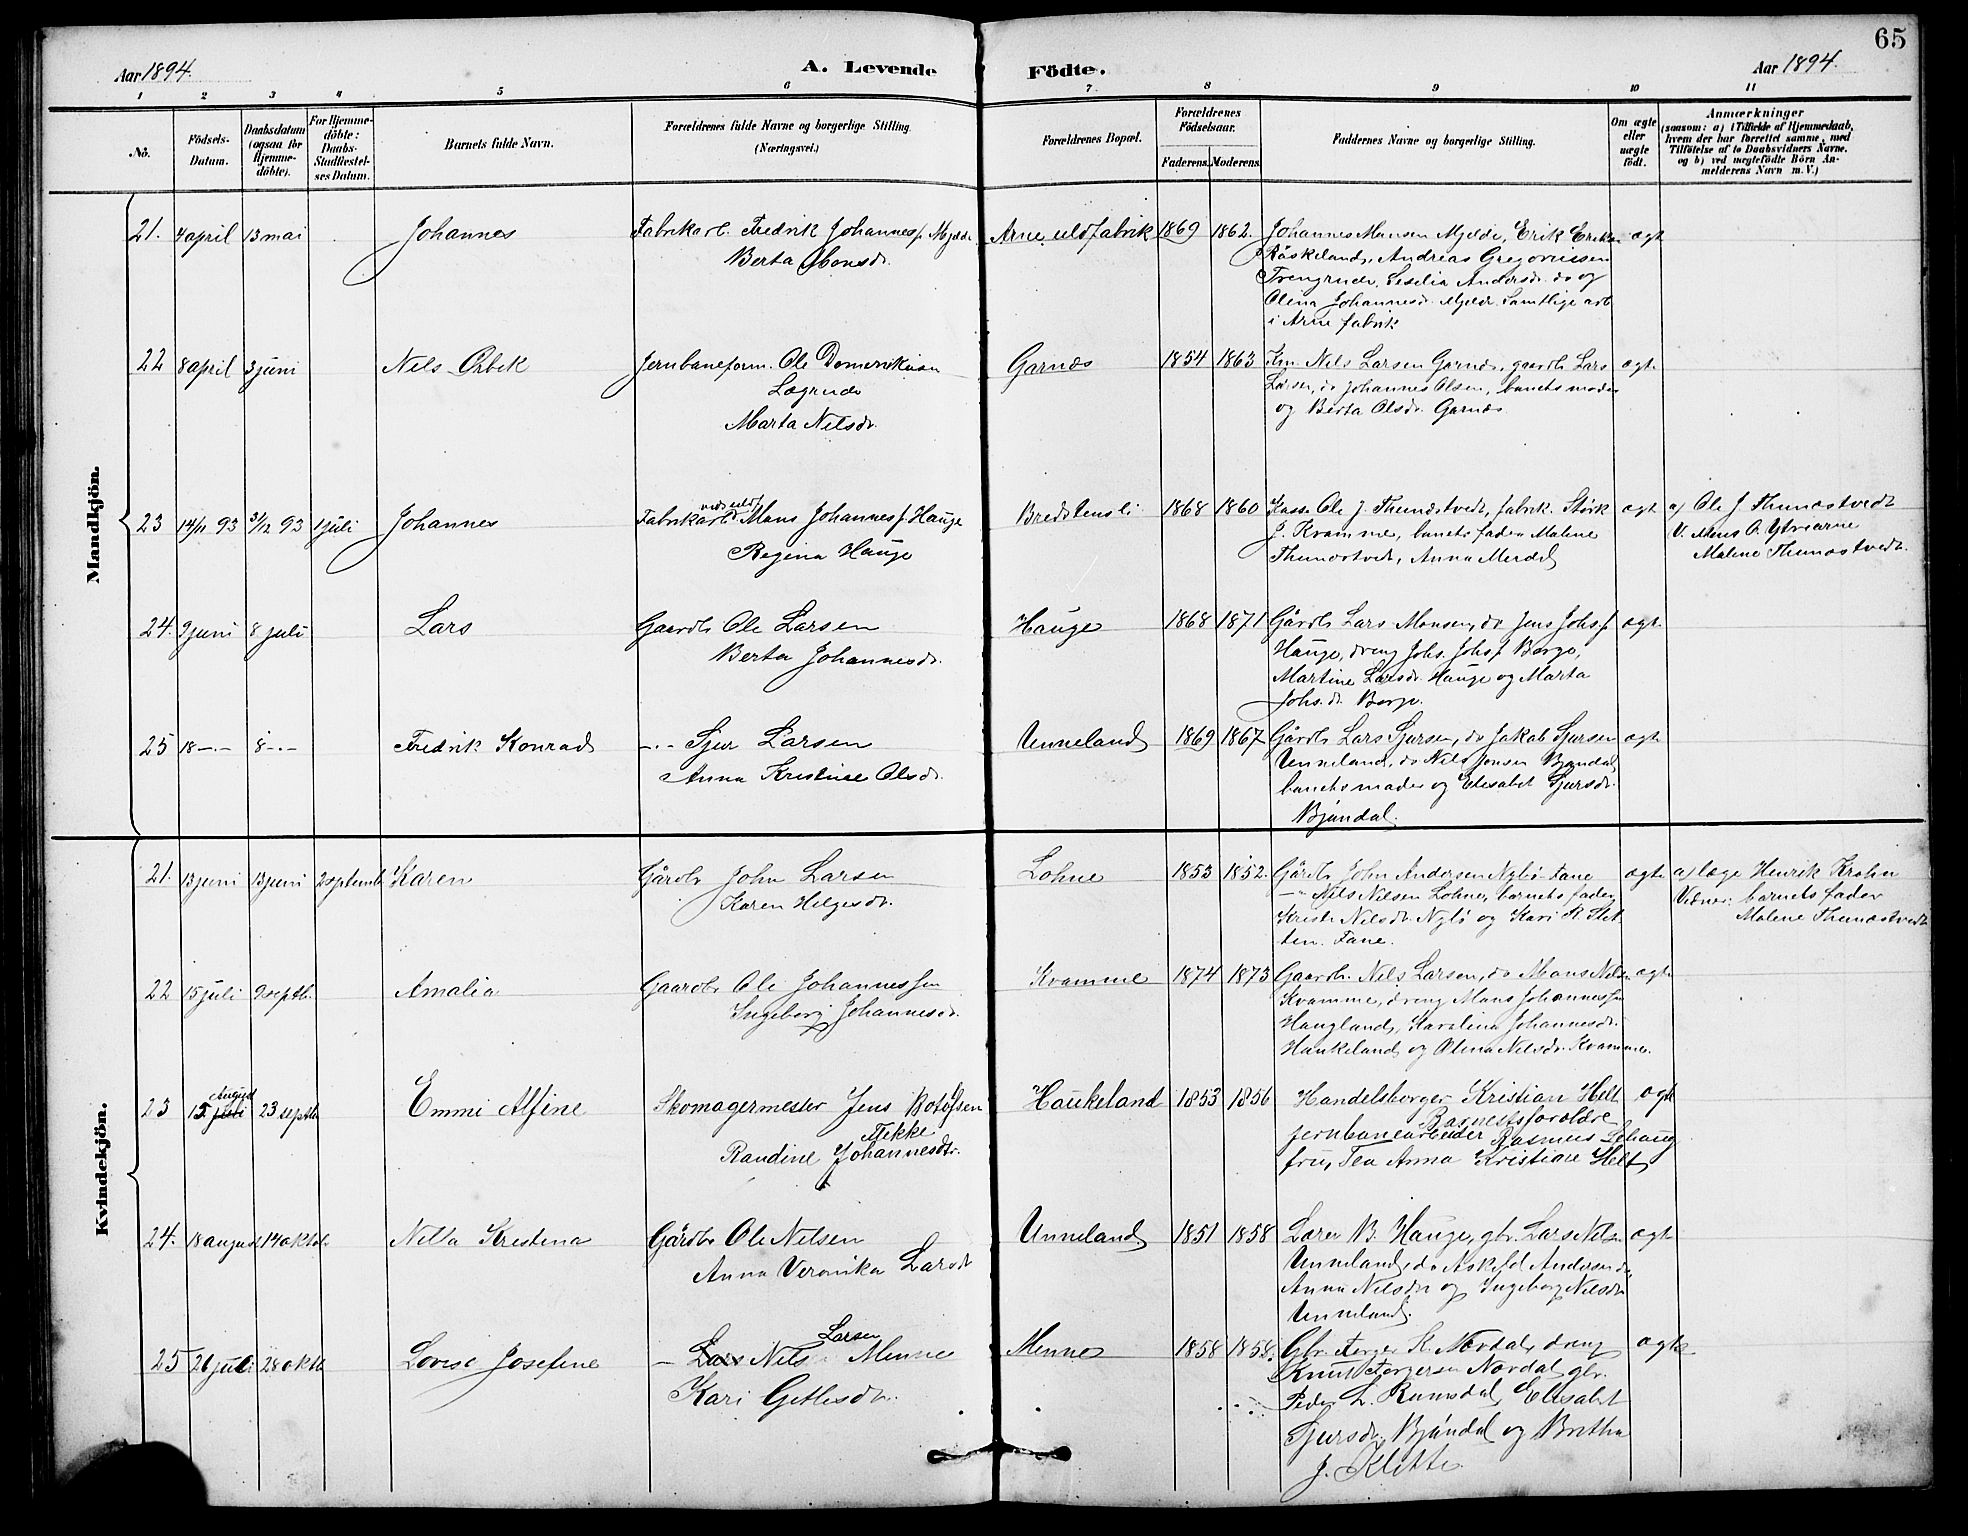 65
Aar 1894.
A. Levende
Födte.
Aar 1894.
1 2 3 4 5 6 7 8 9 10 11
No.
Födsels-Datum.
Daabsdatum (ogsaa for Hjemme-döbte).
For Hjemme-döbte: Daabs-Stadfæstel-ses Datum.
Barnets fulde Navn.
Forældrenes fulde Navne og borgerlige Stilling.
(Næringsvei.)
Forældrenes Bopæl.
Forældrenes Födselsaar.
Faderens. Moderens.
Faddernes Navne og borgerlige Stilling.
Om ægte eller uægte födt.
Anmærkninger
(saasom: a) i Tilfælde af Hjemmedaab, hvem der har forrettet samme, med Tilföielse af to Daabsvidners Navne. og b) ved uægtefödte Börn An-melderens Navn m. V.)
Mandkjön.
21. 4 april 13 mai Johannes Fabrikarb. Fredrik Johannes. Mjelde Arne uldfabrik 1869 1862. Johannes Monsen Mjelde, Erik Eriksen ægte
Berta Monsdr.
Röskeland, Andreas Gregoriussen
Trengereide, Seselia Andersdr. do og
Olena Johannesdr. Mjelde. Samtlige arb
i Arne fabrik
22 8 april 3 juni Nils Orbek Jernbaneform. Ole Domenikusen Garnæs 1854 1863 Km. Nils Larsen Garnæs, gaardb. Lars ægte
Lægreide
Larsen, do Johannes Olsen, barnets moder
Marta Nilsdr.
og Berta Olsdr. Garnæs.
23 14/11 93 31/12 93 1 juli Johannes Fabrikarb. ved uldf. Mons Johannes. Hauge Bredstensli 1868 1860 Kass. Ole J. Thunæstvedt, fabrik. Störk ægte a) Ole J Thunæstvedt
Regina Hauge
J. Kvamme, barnets fader Malene
V. Mons O. Ytrearne
Thunæstvedt, Anna
Malene Thunæstvedt.
24. 9 juni 8 juli Lars Gaardb Ole Larsen Hauge 1868 1871 Gårdb Lars Monsen, do Jens Johs. ægte
Berta Johannesdr.
Hauge, dreng Johs. Johs. Borge,
Martine Larsdr. Hauge og Marta
Johs.dr. Borge.
25 18 -.- 8 -.- Fredrik Konrad -.- Sjur Larsen Unneland 1869 1867 Gårdb Lars Sjursen, do Jakob Sjursen ægte
Anna Kristine Olsdr.
Unneland, do Nils Jonsen Bjøndal
barnets moder og Elisabet Sjursdr.
Bjøndal.
Kvindekjön.
21. 13 juni 13 juni 2 septemb Karen Gårdbr John Larsen Lohne 1853 1852. Gårdb John Andersen Nylö Fane ægte a) læge Henrik Krohn
Karen Helgesdr.
-"- Nils Nilsen Lohne, barnets fader
Vidner: barnets fader
Kristi Nilsdr. Nylö og Kari R.
Malene Thunæstvedt
Fane.
22 15 juli 9 septb. Amalia Gaardbr Ole Johannessen Kvamme 1874 1873 Gaardb. Nils Larsen, do Mons Nilsen ægte
Ingeborg Johannesdr.
Kvamme, dreng Mons Johannessen
Haugland, Karolina Johannesdr.
Haukeland og Olena Nilsdr. Kvamme.
23 15 August juni 23 septb Emmi Alfine Skomagermester Jens Botolfsen Haukeland 1853 1856 Handelsborger Kristian Helt ægte
Flekke
Barnets forældre
Randine Johannesdtr.
jernbanearbeider Rasmus Schaug
fru, Tea Anna Kristiane Helt
24. 18 august 14 oktob Nilla Kristena Gårdbr Ole Nilsen Unneland 1851 1858 Lærer B. Hauge, gbr. Lars Nilsen ægte
Anna Veronika Larsdr
Unneland, do Askild Andersen do,
Anna Nilsdr og Ingeborg Nilsdr
Unneland.
25 26 juli 28 oktb Lovise Josefine - Lars Nils Larsen Minne Minne 1858 1858. Gbr. Torger K. Nordal, dreng ægte
Kari Gitlesdr.
Knut Torgersen Nordal gbr.
Peder L. Romsdal, Elisabet
Sjursdr. Bjøndal og Britha
J. Klette.